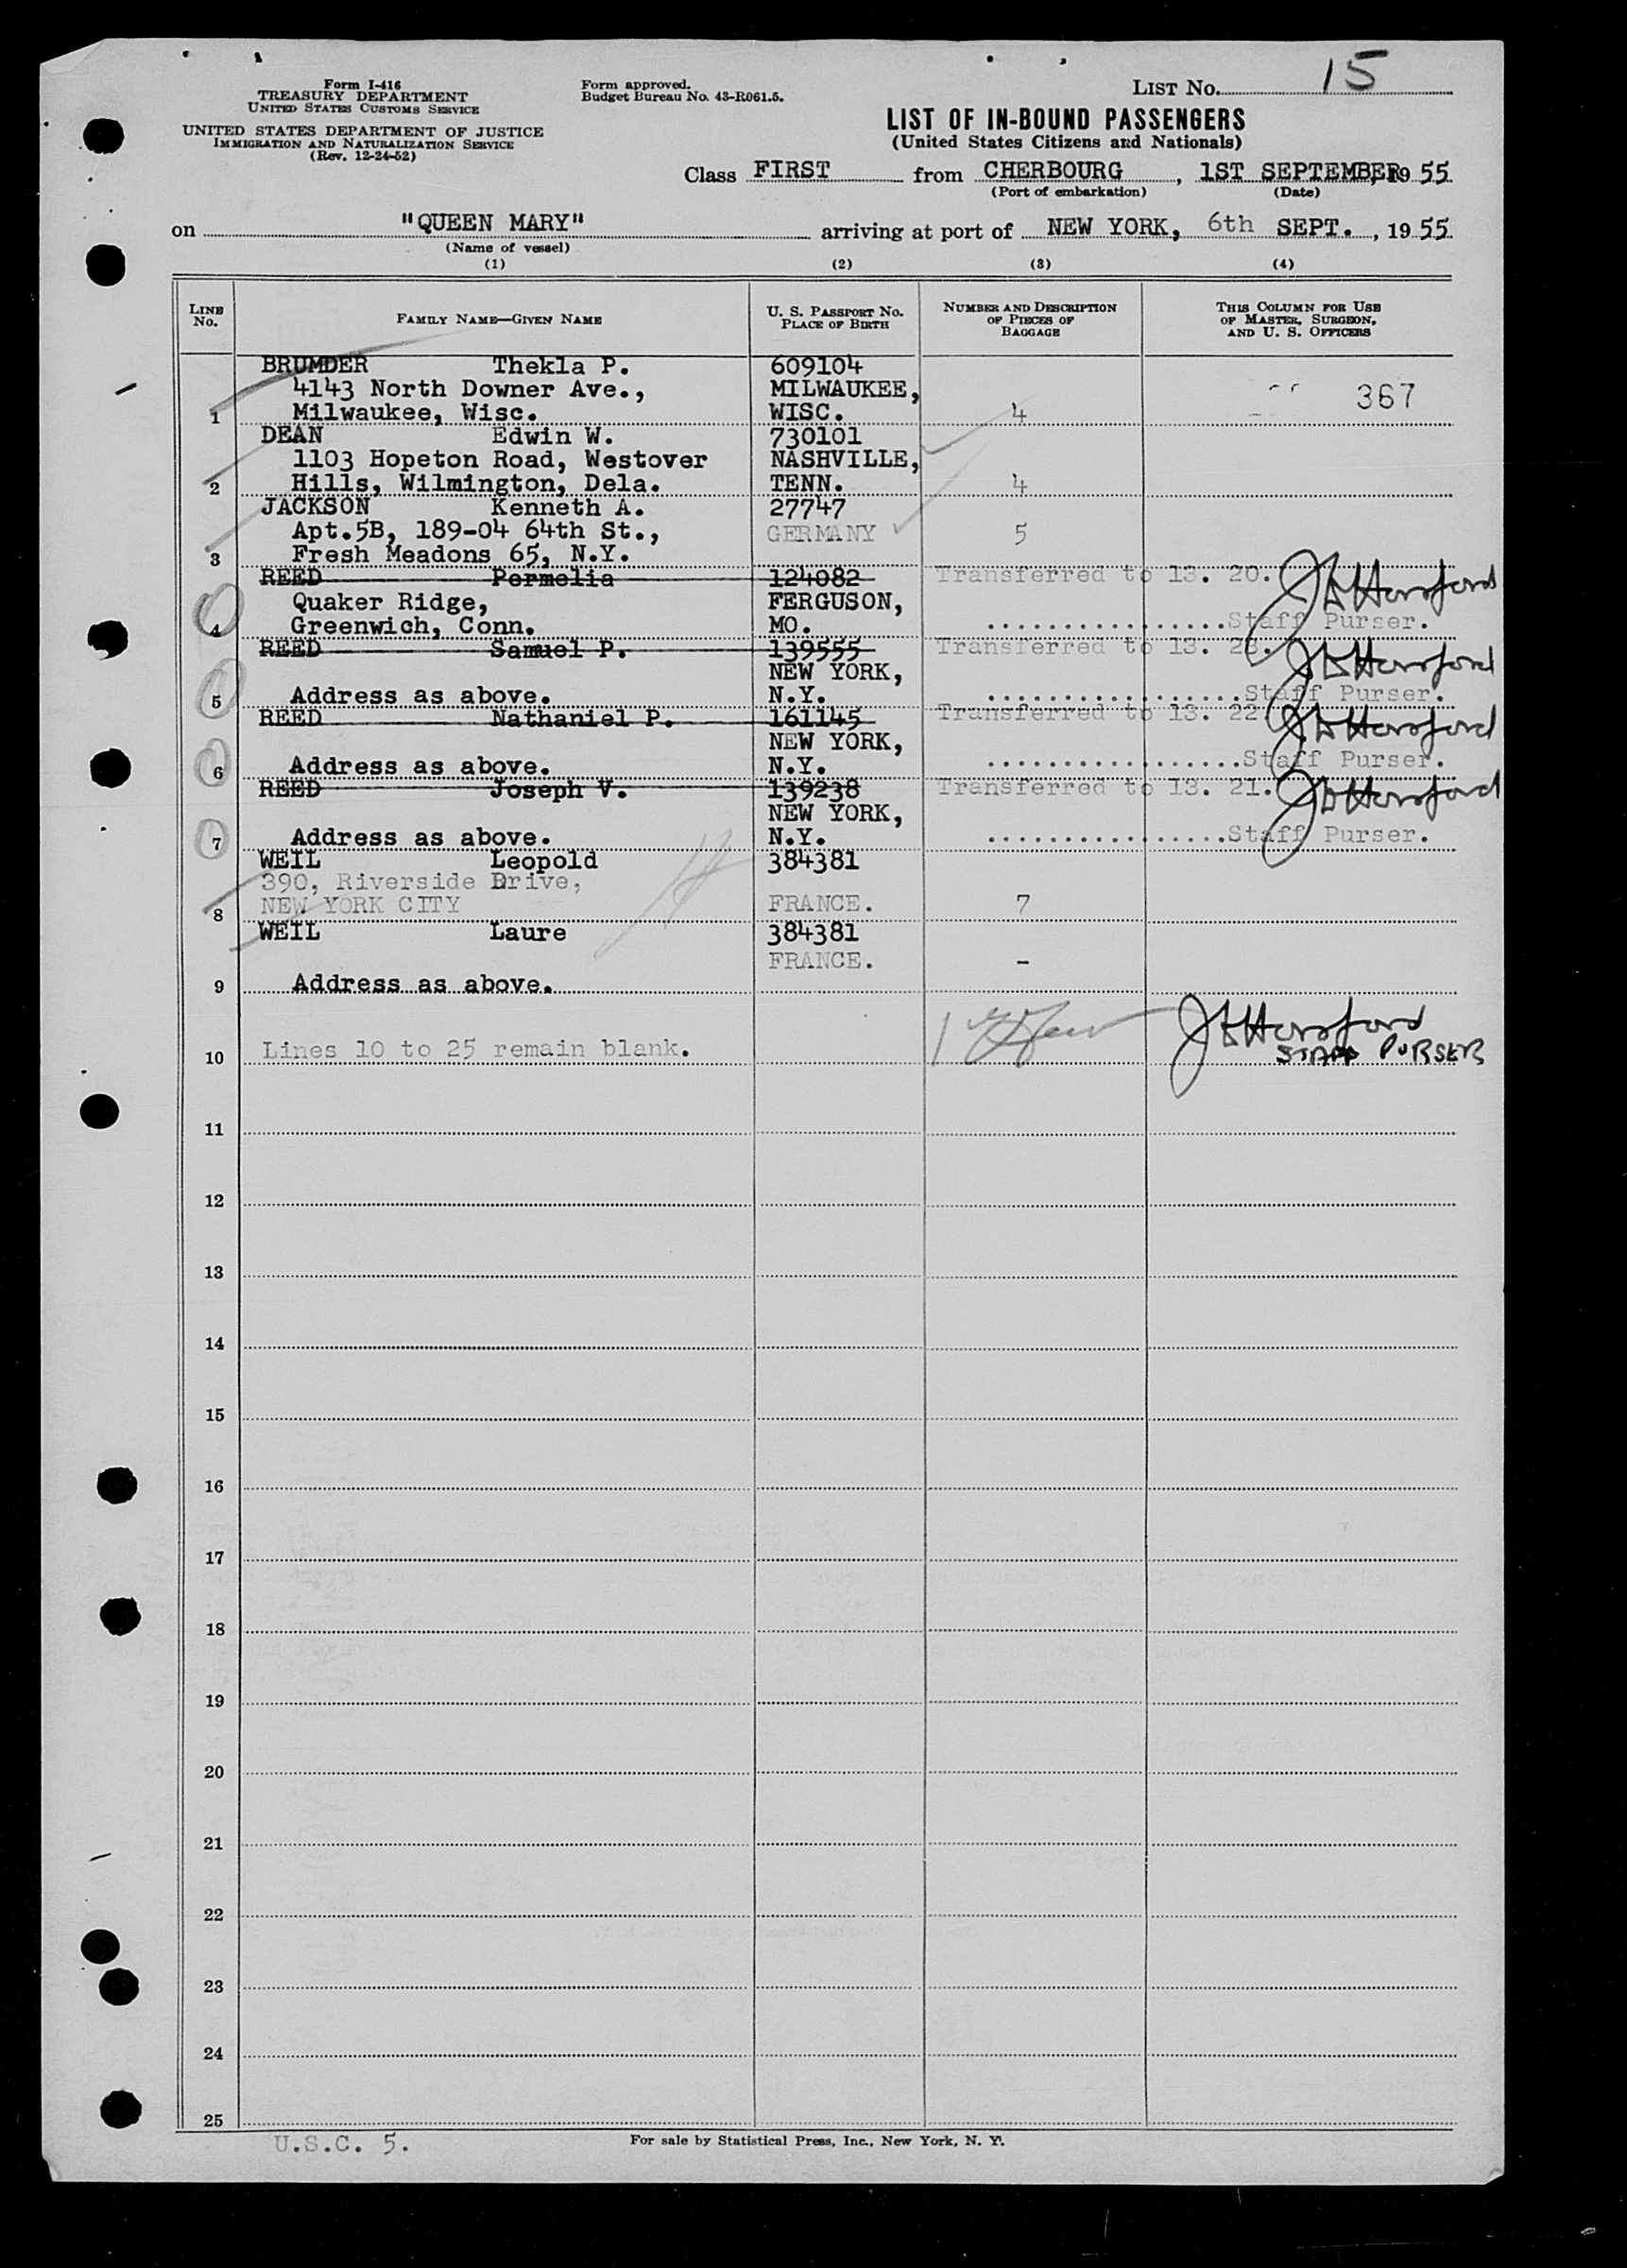 Form I-416
TREASURY DEPARTMENT
UNITED STATES CUSTOMS SERVICE
UNITED STATES DEPARTMENT OF JUSTICE
IMMIGRATION AND NATURALIZATION SERVICE
(Rev. 12-24-52)
Form approved.
Budget Bureau No. 43-R061.5.
LIST No. 15
LIST OF IN-BOUND PASSENGERS
(United States Citizens and Nationals)
Class FIRST from CHERBOURG, 1ST SEPTEMBER, 1955
(Port of embarkation) (Date)
on "QUEEN MARY" arriving at port of NEW YORK, 6th SEPT., 1955
(Name of vessel)
(1) (2) (3) (4)
LINE No. FAMILY NAME—GIVEN NAME U. S. PASSPORT No. PLACE OF BIRTH NUMBER AND DESCRIPTION OF PIECES OF BAGGAGE THIS COLUMN FOR USE OF MASTER, SURGEON, AND U. S. OFFICERS
BRUMDER Thekla P. 609104
4143 North Downer Ave., MILWAUKEE, 367
1 Milwaukee, Wisc. WISC. 4
DEAN Edwin W. 730101
1103 Hopeton Road, Westover NASHVILLE,
2 Hills, Wilmington, Dela. TENN. 4
JACKSON Kenneth A. 27747
Apt.5B, 189-04 64th St., GERMANY 5
3 Fresh Meadons 65, N.Y.
REED Permelia 124082 Transferred to 13. 20. J Horsford
Quaker Ridge, FERGUSON,
4 Greenwich, Conn. MO. ................Staff Purser.
REED Samuel P. 139555 Transferred to 13. 23. J Horsford
NEW YORK,
5 Address as above. N.Y. .................Staff Purser.
REED Nathaniel P. 161145 Transferred to 13. 22. J Horsford
NEW YORK,
6 Address as above. N.Y. .................Staff Purser.
REED Joseph V. 139238 Transferred to 13. 21. J Horsford
NEW YORK,
7 Address as above. N.Y. ................Staff Purser.
WEIL Leopold 384381
390, Riverside Drive,
8 NEW YORK CITY FRANCE. 7
WEIL Laure 384381
FRANCE. -
9 Address as above.
J Horsford
10 Lines 10 to 25 remain blank. STAFF PURSER
11
12
13
14
15
16
17
18
19
20
21
22
23
24
25
U.S.C. 5.
For sale by Statistical Press, Inc., New York, N. Y.